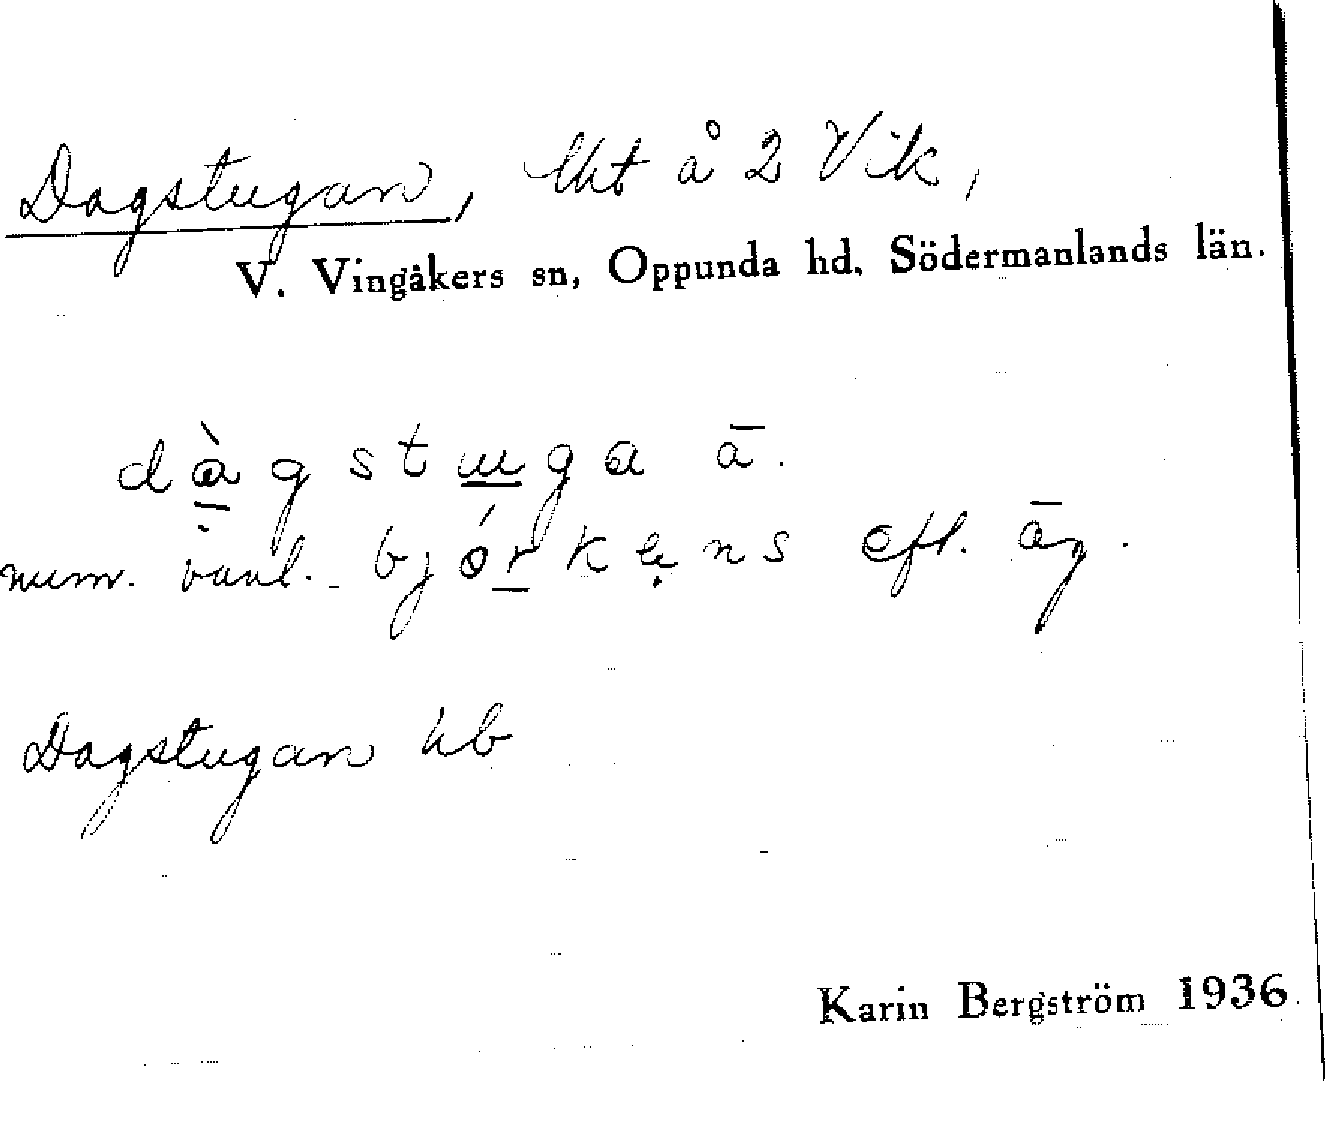 Dagstugan, lht å 2 Vik,
V. Vingåkers sn, Oppunda hd, Södermanlands län.
dàgstuga ā.
num. vanl. bjórkens eft. äg.
Dagstugan hb
Karin Bergström 1936